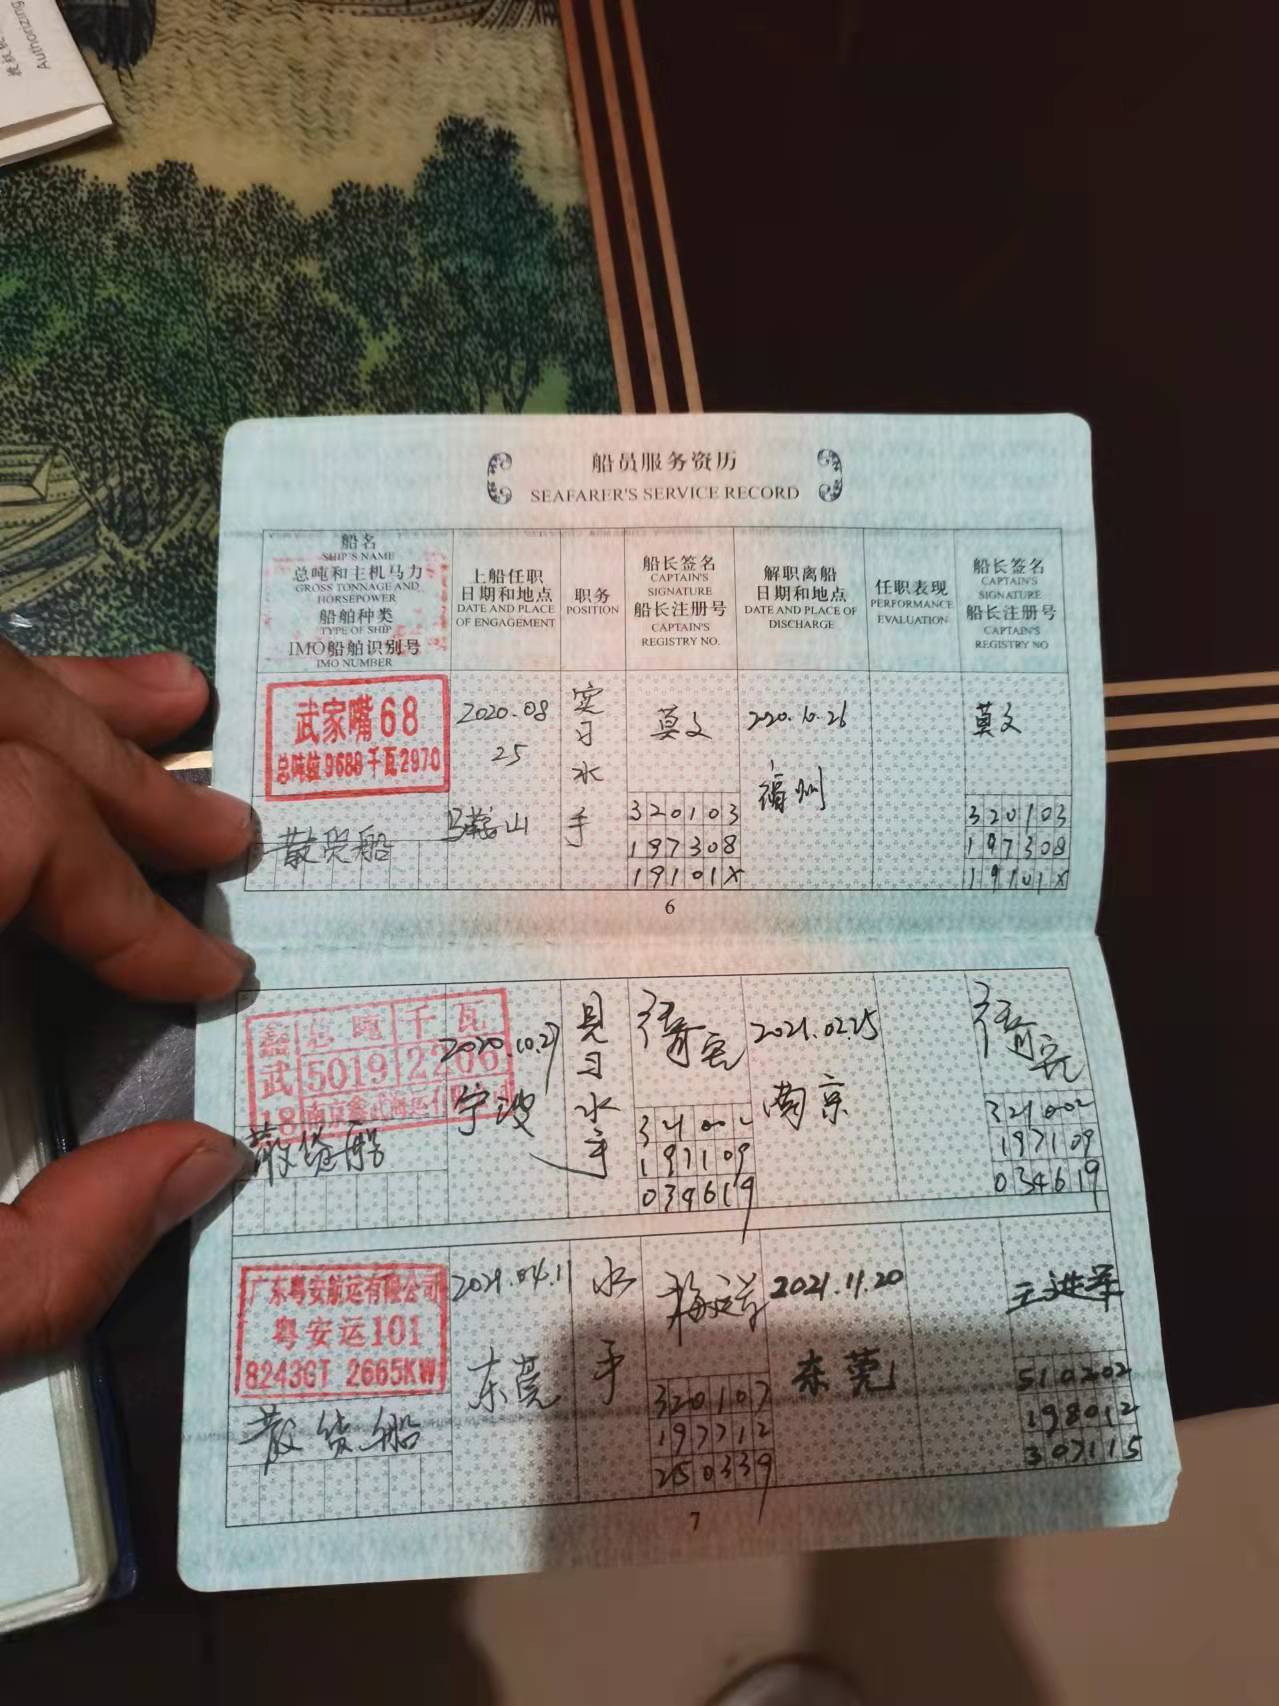 Authorizing
船员服务资历
SEAFARER'S SERVICE RECORD
船名
SHIP'S NAME
总吨和主机马力
GROSS TONNAGE AND
HORSEPOWER
船舶种类
TYPE OF SHIP
IMO船舶识别号
IMO NUMBER
上船任职
日期和地点
DATE AND PLACE
OF ENGAGEMENT
职务
POSITION
船长签名
CAPTAIN'S
SIGNATURE
船长注册号
CAPTAIN'S
REGISTRY NO.
解职离船
日期和地点
DATE AND PLACE OF
DISCHARGE
任职表现
PERFORMANCE
EVALUATION
船长签名
CAPTAIN'S
SIGNATURE
船长注册号
CAPTAIN'S
REGISTRY NO
武家嘴68
总吨位9688千瓦2970
散货船
2020.08
25
马鞍山
实习水手
莫文
320103
197308
19101X
2020.10.26
福州
莫文
320103
197308
19101X
6
鑫武18
总吨 千瓦
5019 2206
南京鑫武海运有限公司
散货船
2020.10.27
宁波
见习水手
321002
197109
034619
2021.02.25
南京
321002
197109
034619
广东粤安航运有限公司
粤安运101
8243GT 2665KW
散货船
2021.04.11
东莞
水手
320107
197712
250339
2021.11.20
东莞
510202
198012
307115
7